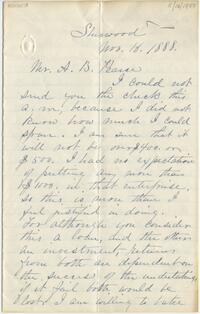 Nov. 18. 1888.
Mr. A. B.
I could not
send you the check this
a.m. because I did not
know how much I could
spare. I am sure that it
will not be over $400. or
$500. I had no expectation
of putting any more than
$1100. in that enterprise.
So this is more than I
feel justified in doing.
For although you consider
this a loan, and the other
an investment, returns
from both are dependent on
the success of the undertaking,
if it fail both would be
lost. I am willing to